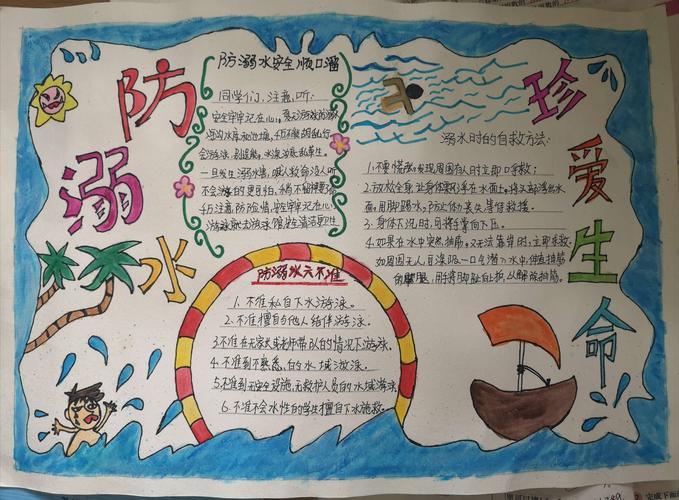 防溺水
珍爱生命
防溺水安全顺口溜
同学们，注意听：
安全牢牢记在心
一旦发生溺水情，喊人救命没人听
4点注意防险情，安全牢牢记在心
溺水时的自救方法：
1、不要慌张，发现周围有人时立即呼救；
2、放松全身，让身体飘浮在水面上，将头部浮出水
面，用脚踢水，防止体力丧失，等待救援。
3、身体下沉时，可将手掌向下压。
4、如果在水中突然抽筋，又无法靠岸时，立即求救。
如周围无人，可深吸一口气潜入水中，伸直抽筋
的那腿，用手将脚趾向上扳，以解除抽筋。
防溺水六不准
1、不准私自下水游泳。
2、不准擅自与他人结伴游泳。
3、不准在无家长或老师带队的情况下游泳。
4、不准到不熟悉的水域游泳。
5、不准到无安全设施、无救护人员的水域游泳。
6、不准不会水性的学生擅自下水施救。